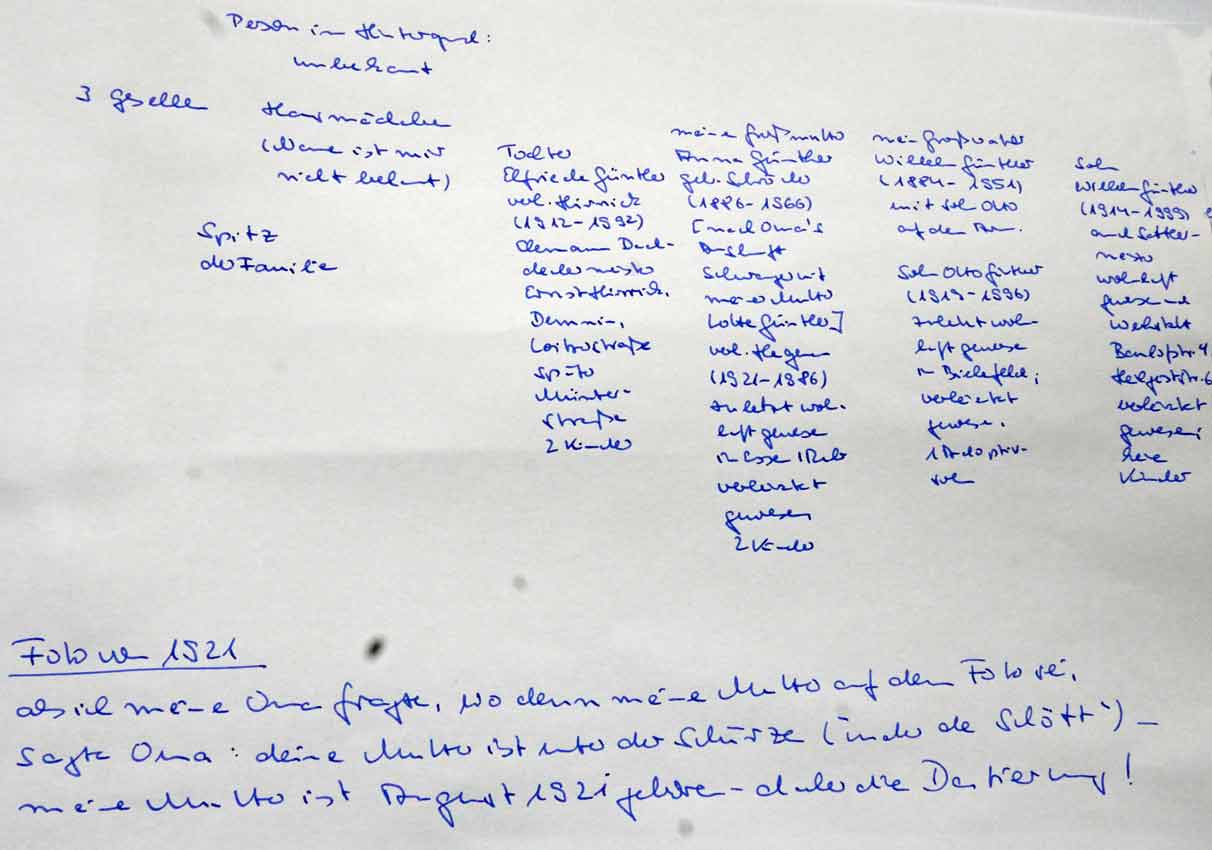 Person im Hintergrund:
unbekannt
3 Geselle
Hausmädchen
(Name ist mir
nicht bekannt)
Spitz
der Familie
Tochter
Elfriede Günther
verh. Hinrich
(1912-1992)
Ehemann Dach-
deckermeister
Ernst Hinrich,
Demmin,
Loitzerstraße
später
Münter-
straße
2 Kinder
meine Großmutter
Anna Günther
geb. Schröder
(1886-1966)
[nach Oma's
Auskunft
Schwanger mit
meiner Mutter
Lotte Günther]
verh. Hagen
(1921-1986)
zuletzt wohn-
haft gewesen
in Essen/Ruhr
verheiratet
gewesen
2 Kinder
mein Großvater
Wilhelm Günther
(1884-1951)
mit Sohn Otto
auf dem Arm.
Sohn Otto Günther
(1919-1996)
zuletzt wohn-
haft gewesen
in Bielefeld;
verheiratet
gewesen.
1 Adoptiv-
sohn
Sohn
Wilhelm Günther
(1914-1999)
auch Sattler-
meister
wohnhaft
gewesen
Werkstatt
verheiratet
gewesen;
keine
Kinder
Foto von 1921
als ich meine Oma fragte, wo denn meine Mutter auf dem Foto sei,
sagte Oma: deine Mutter ist unter der Schürze (ünder de Schött`) -
meine Mutter ist August 1921 geboren - daher die Datierung!